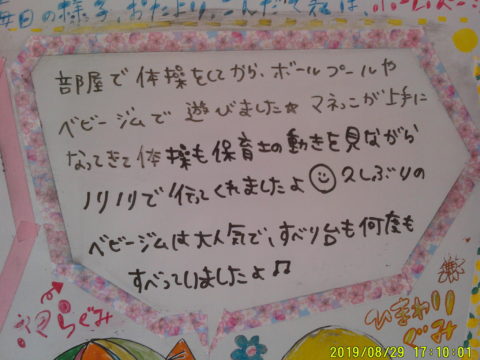 毎日の様子、おたより、こんだて表は、ホームペー
部屋で体操をしてから、ボールプールや
ベビージムで遊びました☆マネっこが上手に
なってきて体操も保育士の動きを見ながら
ノリノリで行ってくれましたよ☺久しぶりの
ベビージムは大人気で、すべり台も何度も
すべっていましたよ♫
さくらぐみ
ひまわり
ぐみ
2019/08/29 17:10:01